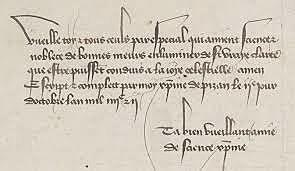 vueille toy et tous ceulx par especial qui aiment science et
noblece de bonnes meurs enluminer de si vraye clarte
que estre puisset conduis a la ioye celestielle amen
Escript et complet par moy xpine de pizan le ije iour
doctobre lan mil iiijc et ij
Ta bien vueillant amie
de science xpine